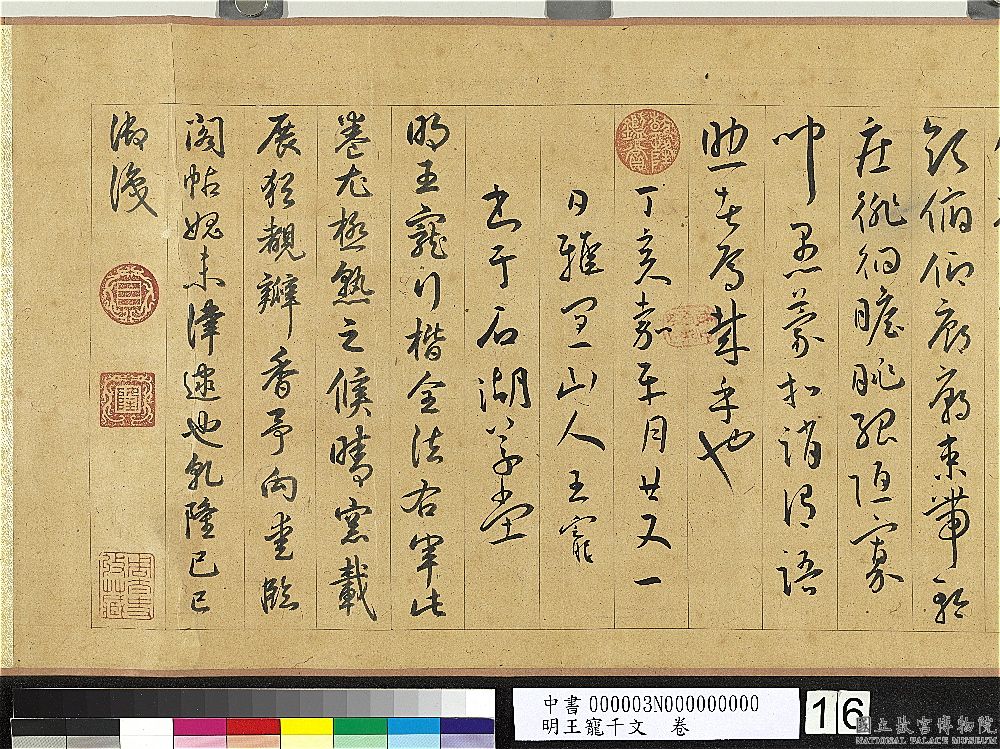 領俯仰廊廟束帶矜
莊徘徊瞻眺孤陋寡
聞愚蒙等誚謂語
助者焉哉乎也
丁亥嘉平月廿又一
日雅宜山人王寵
書于石湖草堂
明王寵行楷全法右軍此
卷尤極熟之候晴窗載
展猶覯瓣香予向愛臨
閣帖媿未津逮也乾隆己巳
御識
中書 000003N000000000
明王寵千文 卷
16
國立故宮博物院
NATIONAL PALACE MUSEUM